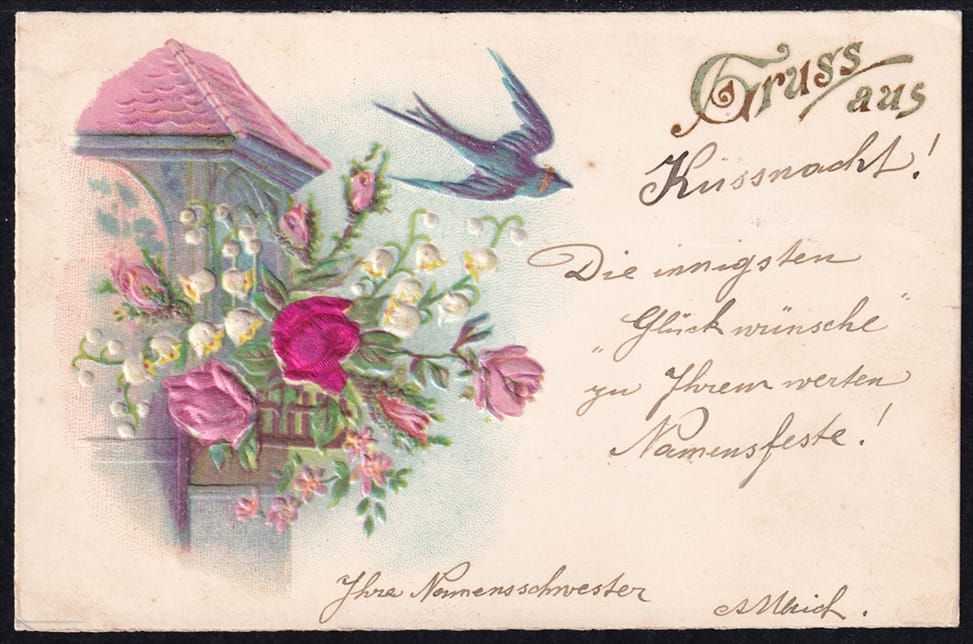 Gruss
aus
Küssnacht!
Die innigsten
„Glückwünsche"
zu Ihrem werten
Namensfeste!
Ihre Namensschwester
A Ulrich.